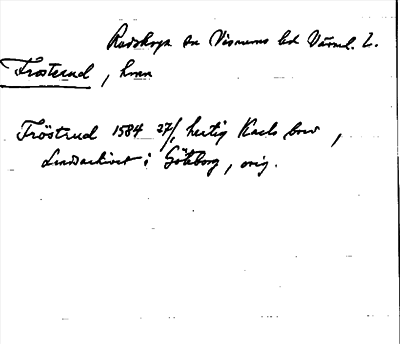 Rudskoga sn Visnums hd Värml. L.
Frösterud, hmn
Fröstrud 1584 27/1 hertig Karls brev,
Landsarkivet i Göteborg, orig.